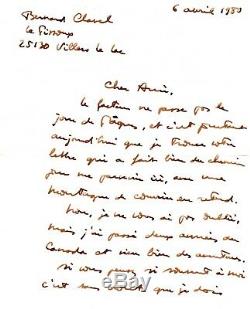 Bernard Clavel
6 avril 1980
Le Pissoux
25130 Villers le lac
Cher Ami,
Le facteur ne passe pas le
jour de Pâques, et c'est pourtant
aujourd'hui que je trouve votre
lettre qui a fait bien du chemin
pour me parvenir ici, avec une
montagne de courrier en retard.
Non, je ne vous ai pas oublié,
mais j'ai passé deux années au
Canada et eu bien des aventures.
Si vous pensez si souvent à moi
c'est sans doute que je dois
ebay